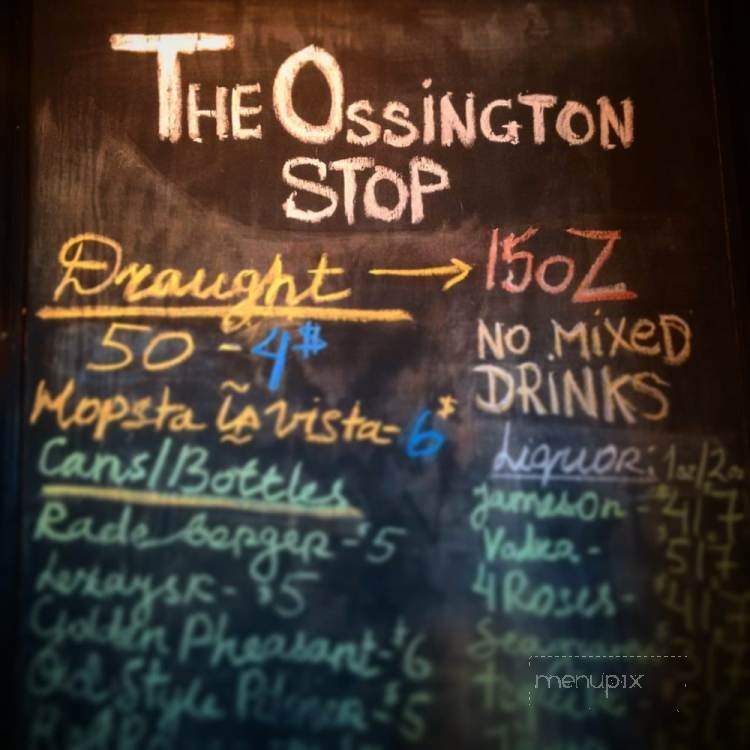 THE OSSINGTON
STOP
Draught → 15oZ
50 - 4$
Hopsta la vista - 6$
NO MIXED
DRINKS
Cans/Bottles
Radeberger - $5
Lezaysk - $5
Golden Pheasant - $6
Old Style Pilsner - $5
Liquor: 1oz/2oz
Jameson - $4/7
Vodka - $5/7
4 Roses - $4/7
menupix